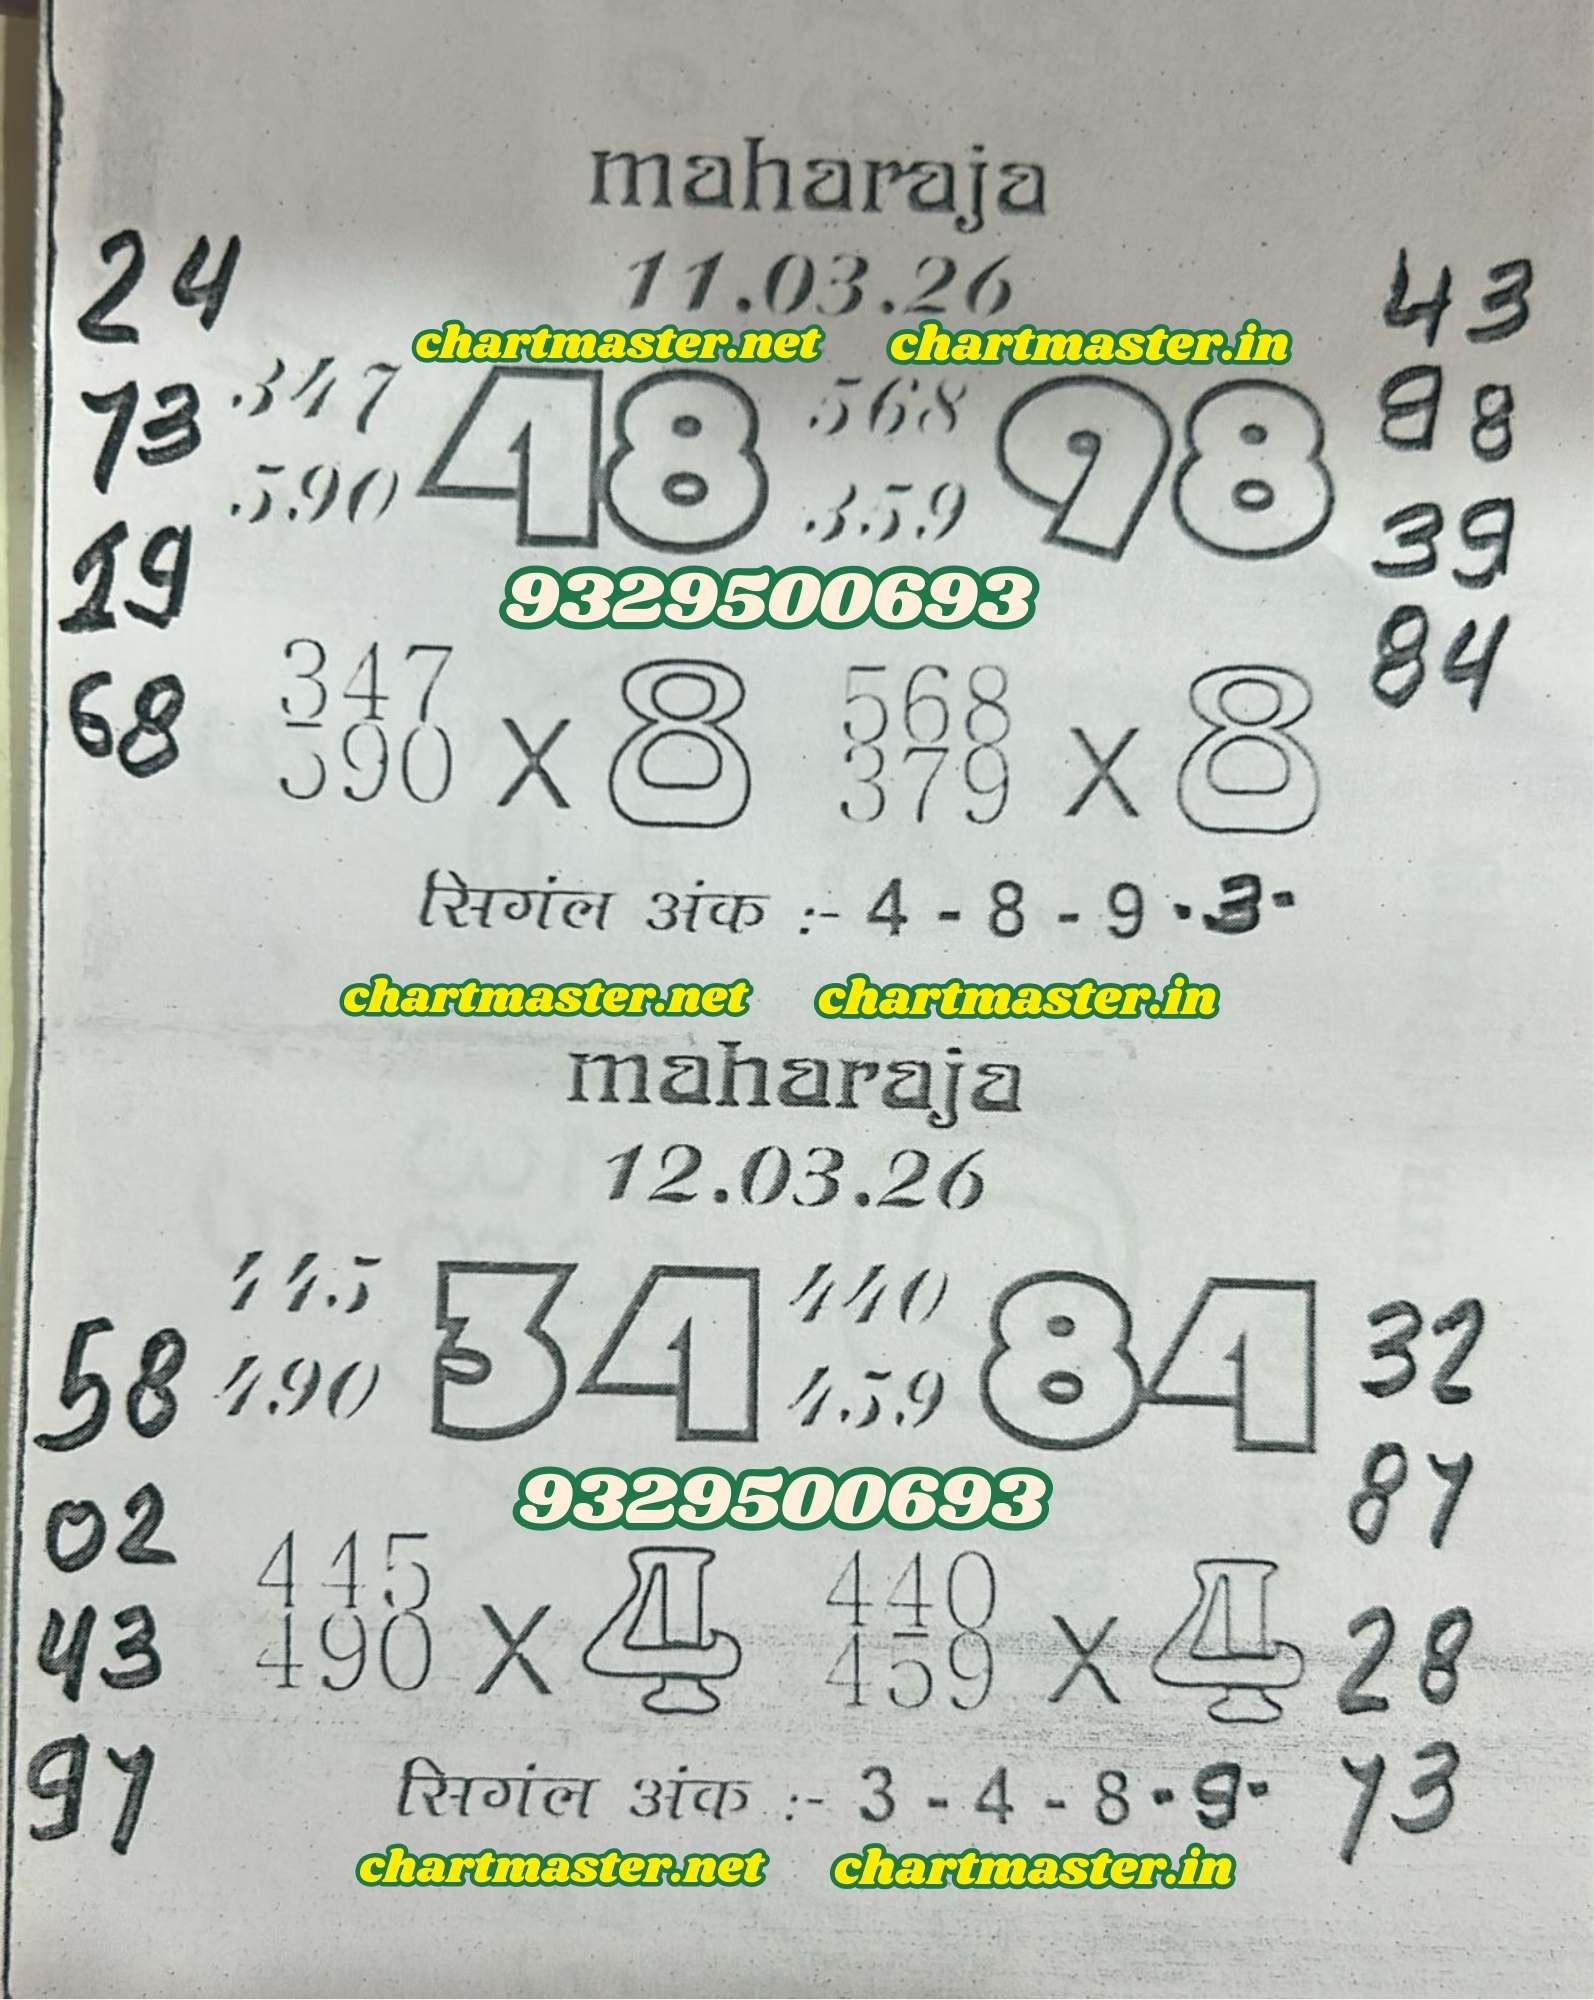 maharaja
11.03.26
chartmaster.net chartmaster.in
24 43
73 347 48 568 98 88
590 359
19 39
9329500693
68 347 x 8 568 x 8 84
590 379
सिगंल अंक :- 4 - 8 - 9 . 3 .
chartmaster.net chartmaster.in
maharaja
12.03.26
445 34 440 84
58 490 459 32
9329500693
02 87
445 x 4 440 x 4
43 490 459 28
97 73
सिगंल अंक :- 3 - 4 - 8 . 9 .
chartmaster.net chartmaster.in